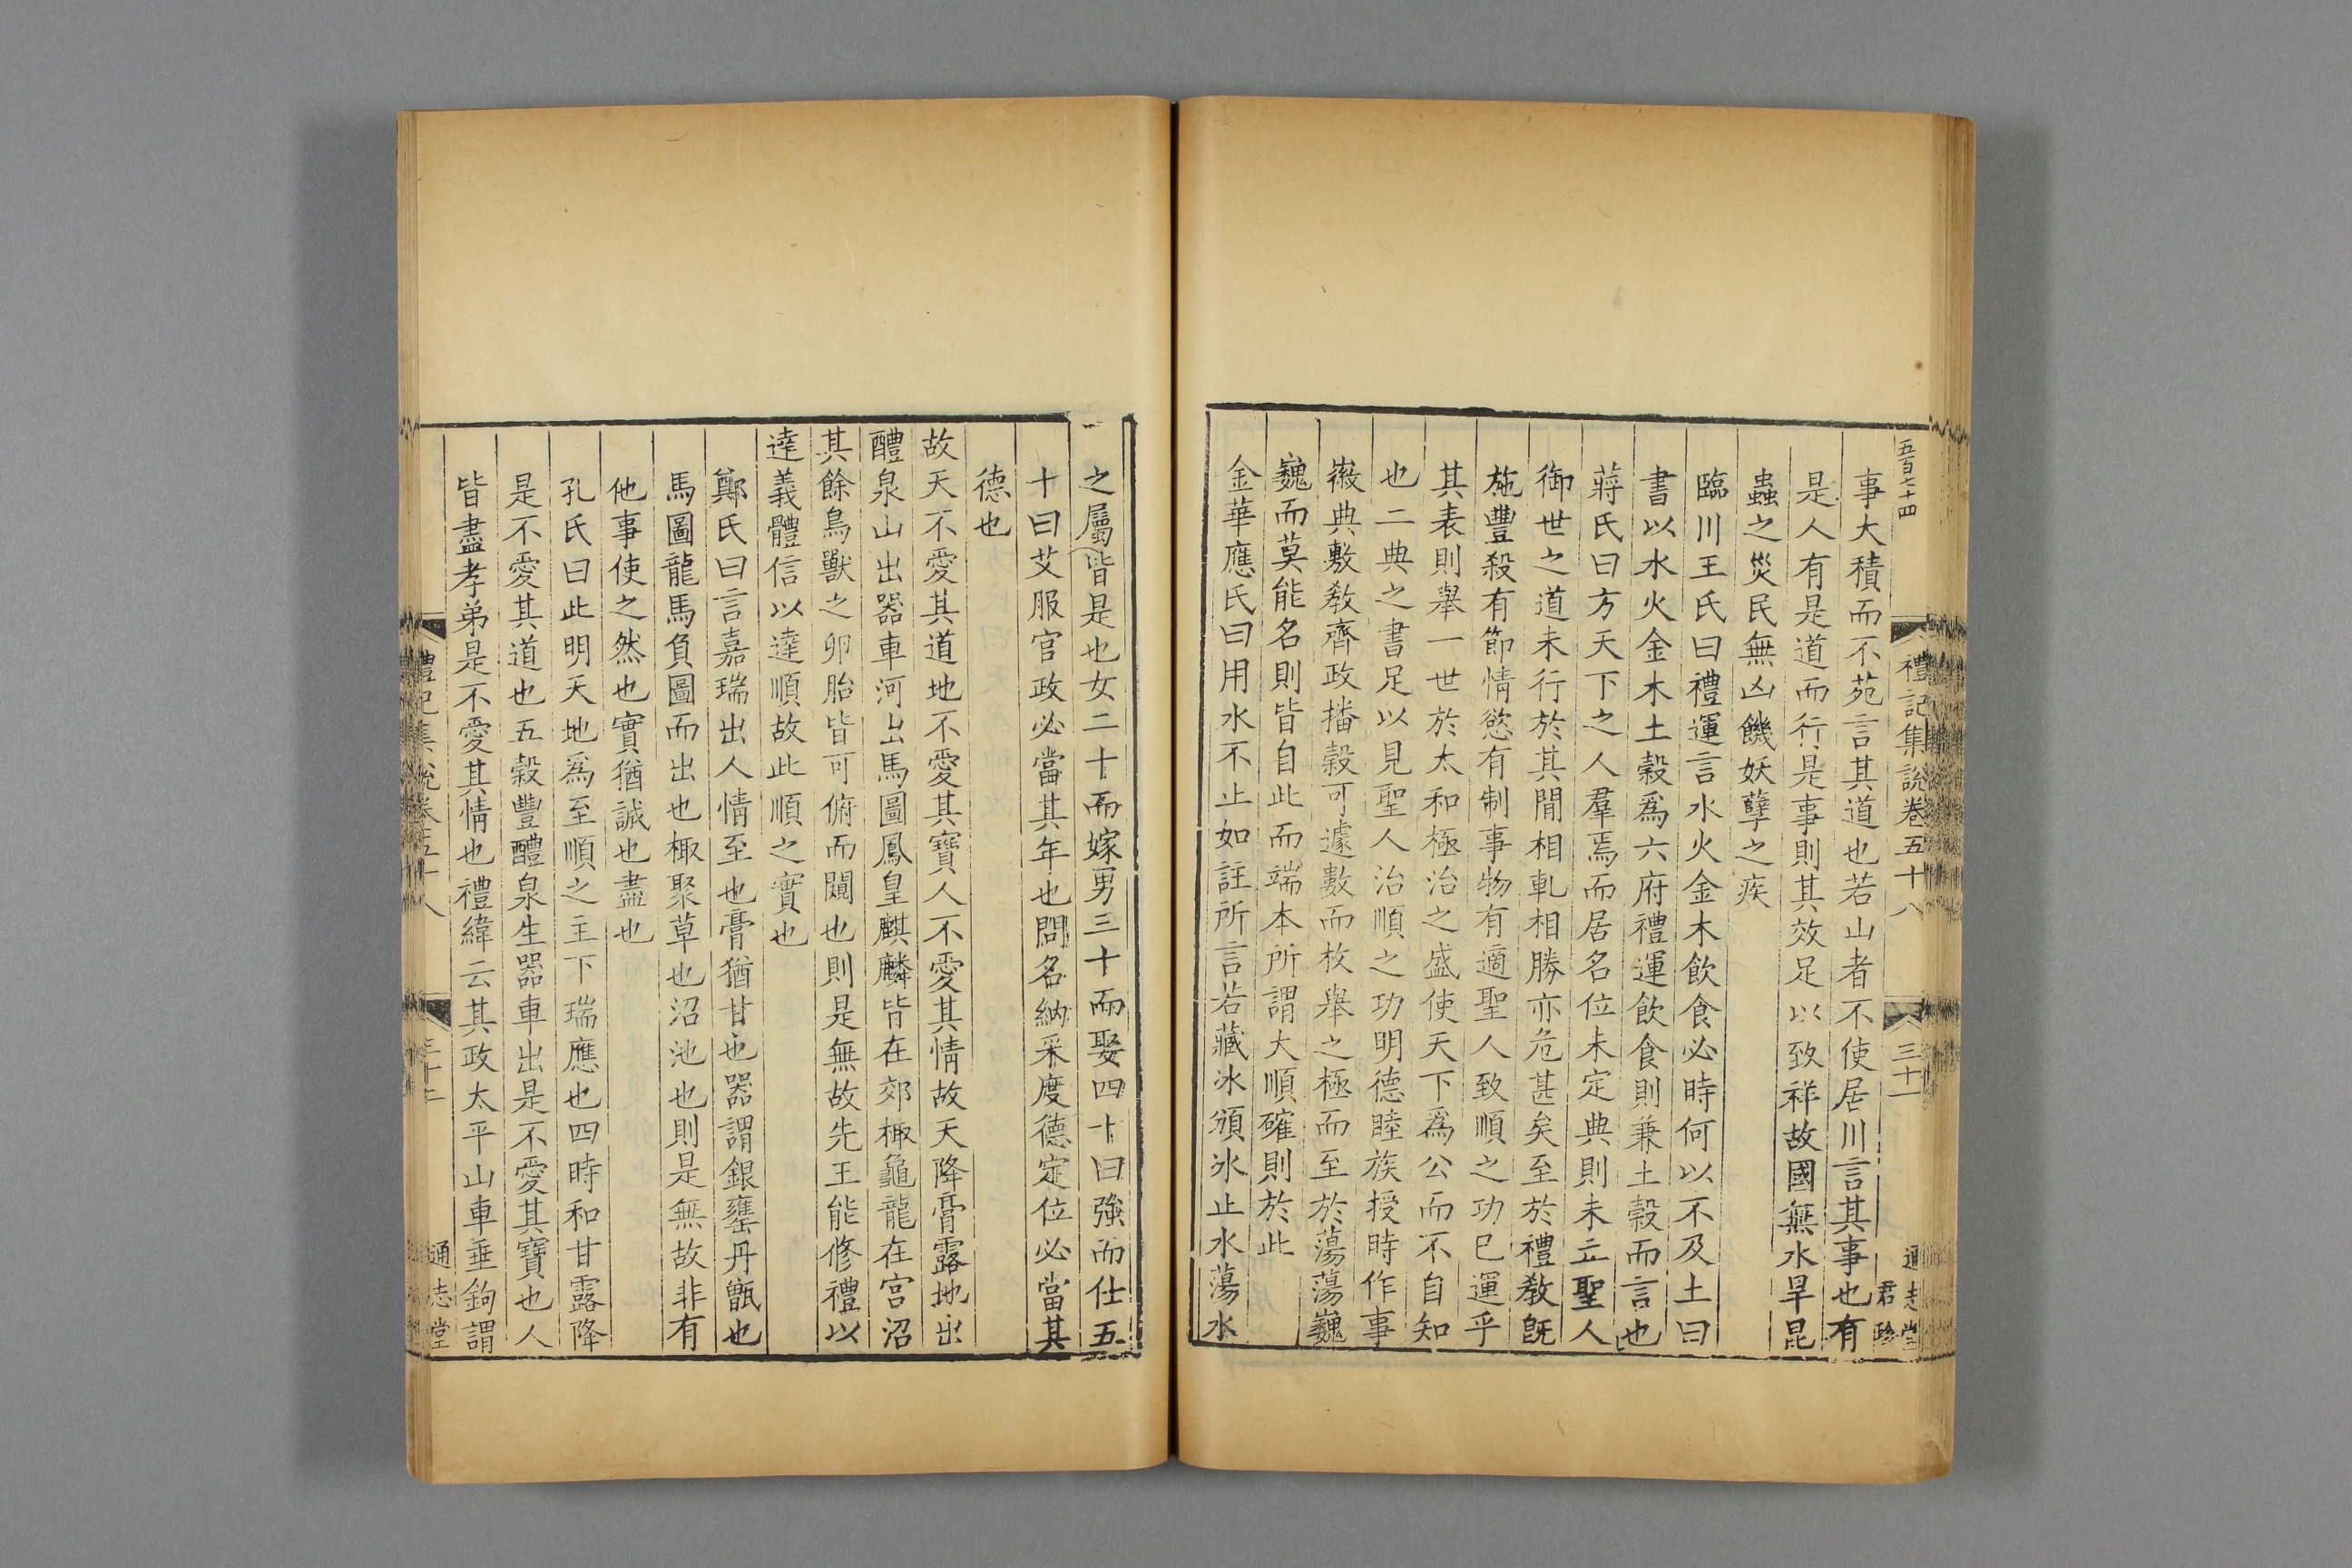 五百七十四
禮記集說卷五十八
三十一
通志堂
君
事大積而不苑言其道也若山者不使居川言其事也有
是人有是道而行是事則其效足以致祥故國無水旱昆
蟲之災民無凶饑妖孽之疾
臨川王氏曰禮運言水火金木飲食必時何以不及土曰
書以水火金木土穀爲六府禮運飲食則兼土穀而言也
蔣氏曰方天下之人羣焉而居名位未定典則未立聖人
御世之道未行於其閒相軋相勝亦危甚矣至於禮敎旣
施豐殺有節情慾有制事物有適聖人致順之功巳運乎
其表則舉一世於太和極治之盛使天下爲公而不自知
也二典之書足以見聖人治順之功明德睦族授時作事
徽典敷敎齊政播穀可遽數而枚舉之極而至於蕩蕩巍
巍而莫能名則皆自此而端本所謂大順確則於此
金華應氏曰用水不止如註所言若藏冰頒冰止水蕩水
之屬皆是也女二十而嫁男三十而娶四十曰強而仕五
十曰艾服官政必當其年也問名納采度德定位必當其
德也
故天不愛其道地不愛其寶人不愛其情故天降膏露地出
醴泉山出器車河出馬圖鳳皇麒麟皆在郊棷龜龍在宮沼
其餘鳥獸之卵胎皆可俯而闚也則是無故先王能修禮以
達義體信以達順故此順之實也
鄭氏曰言嘉瑞出人情至也膏猶甘也器謂銀罋丹甑也
馬圖龍馬負圖而出也棷聚草也沼池也則是無故非有
他事使之然也實猶誠也盡也
孔氏曰此明天地爲至順之主下瑞應也四時和甘露降
是不愛其道也五穀豐醴泉生器車出是不愛其寶也人
皆盡孝弟是不愛其情也禮緯云其政太平山車垂鉤謂
禮記集說卷五十八
三十二
通志堂